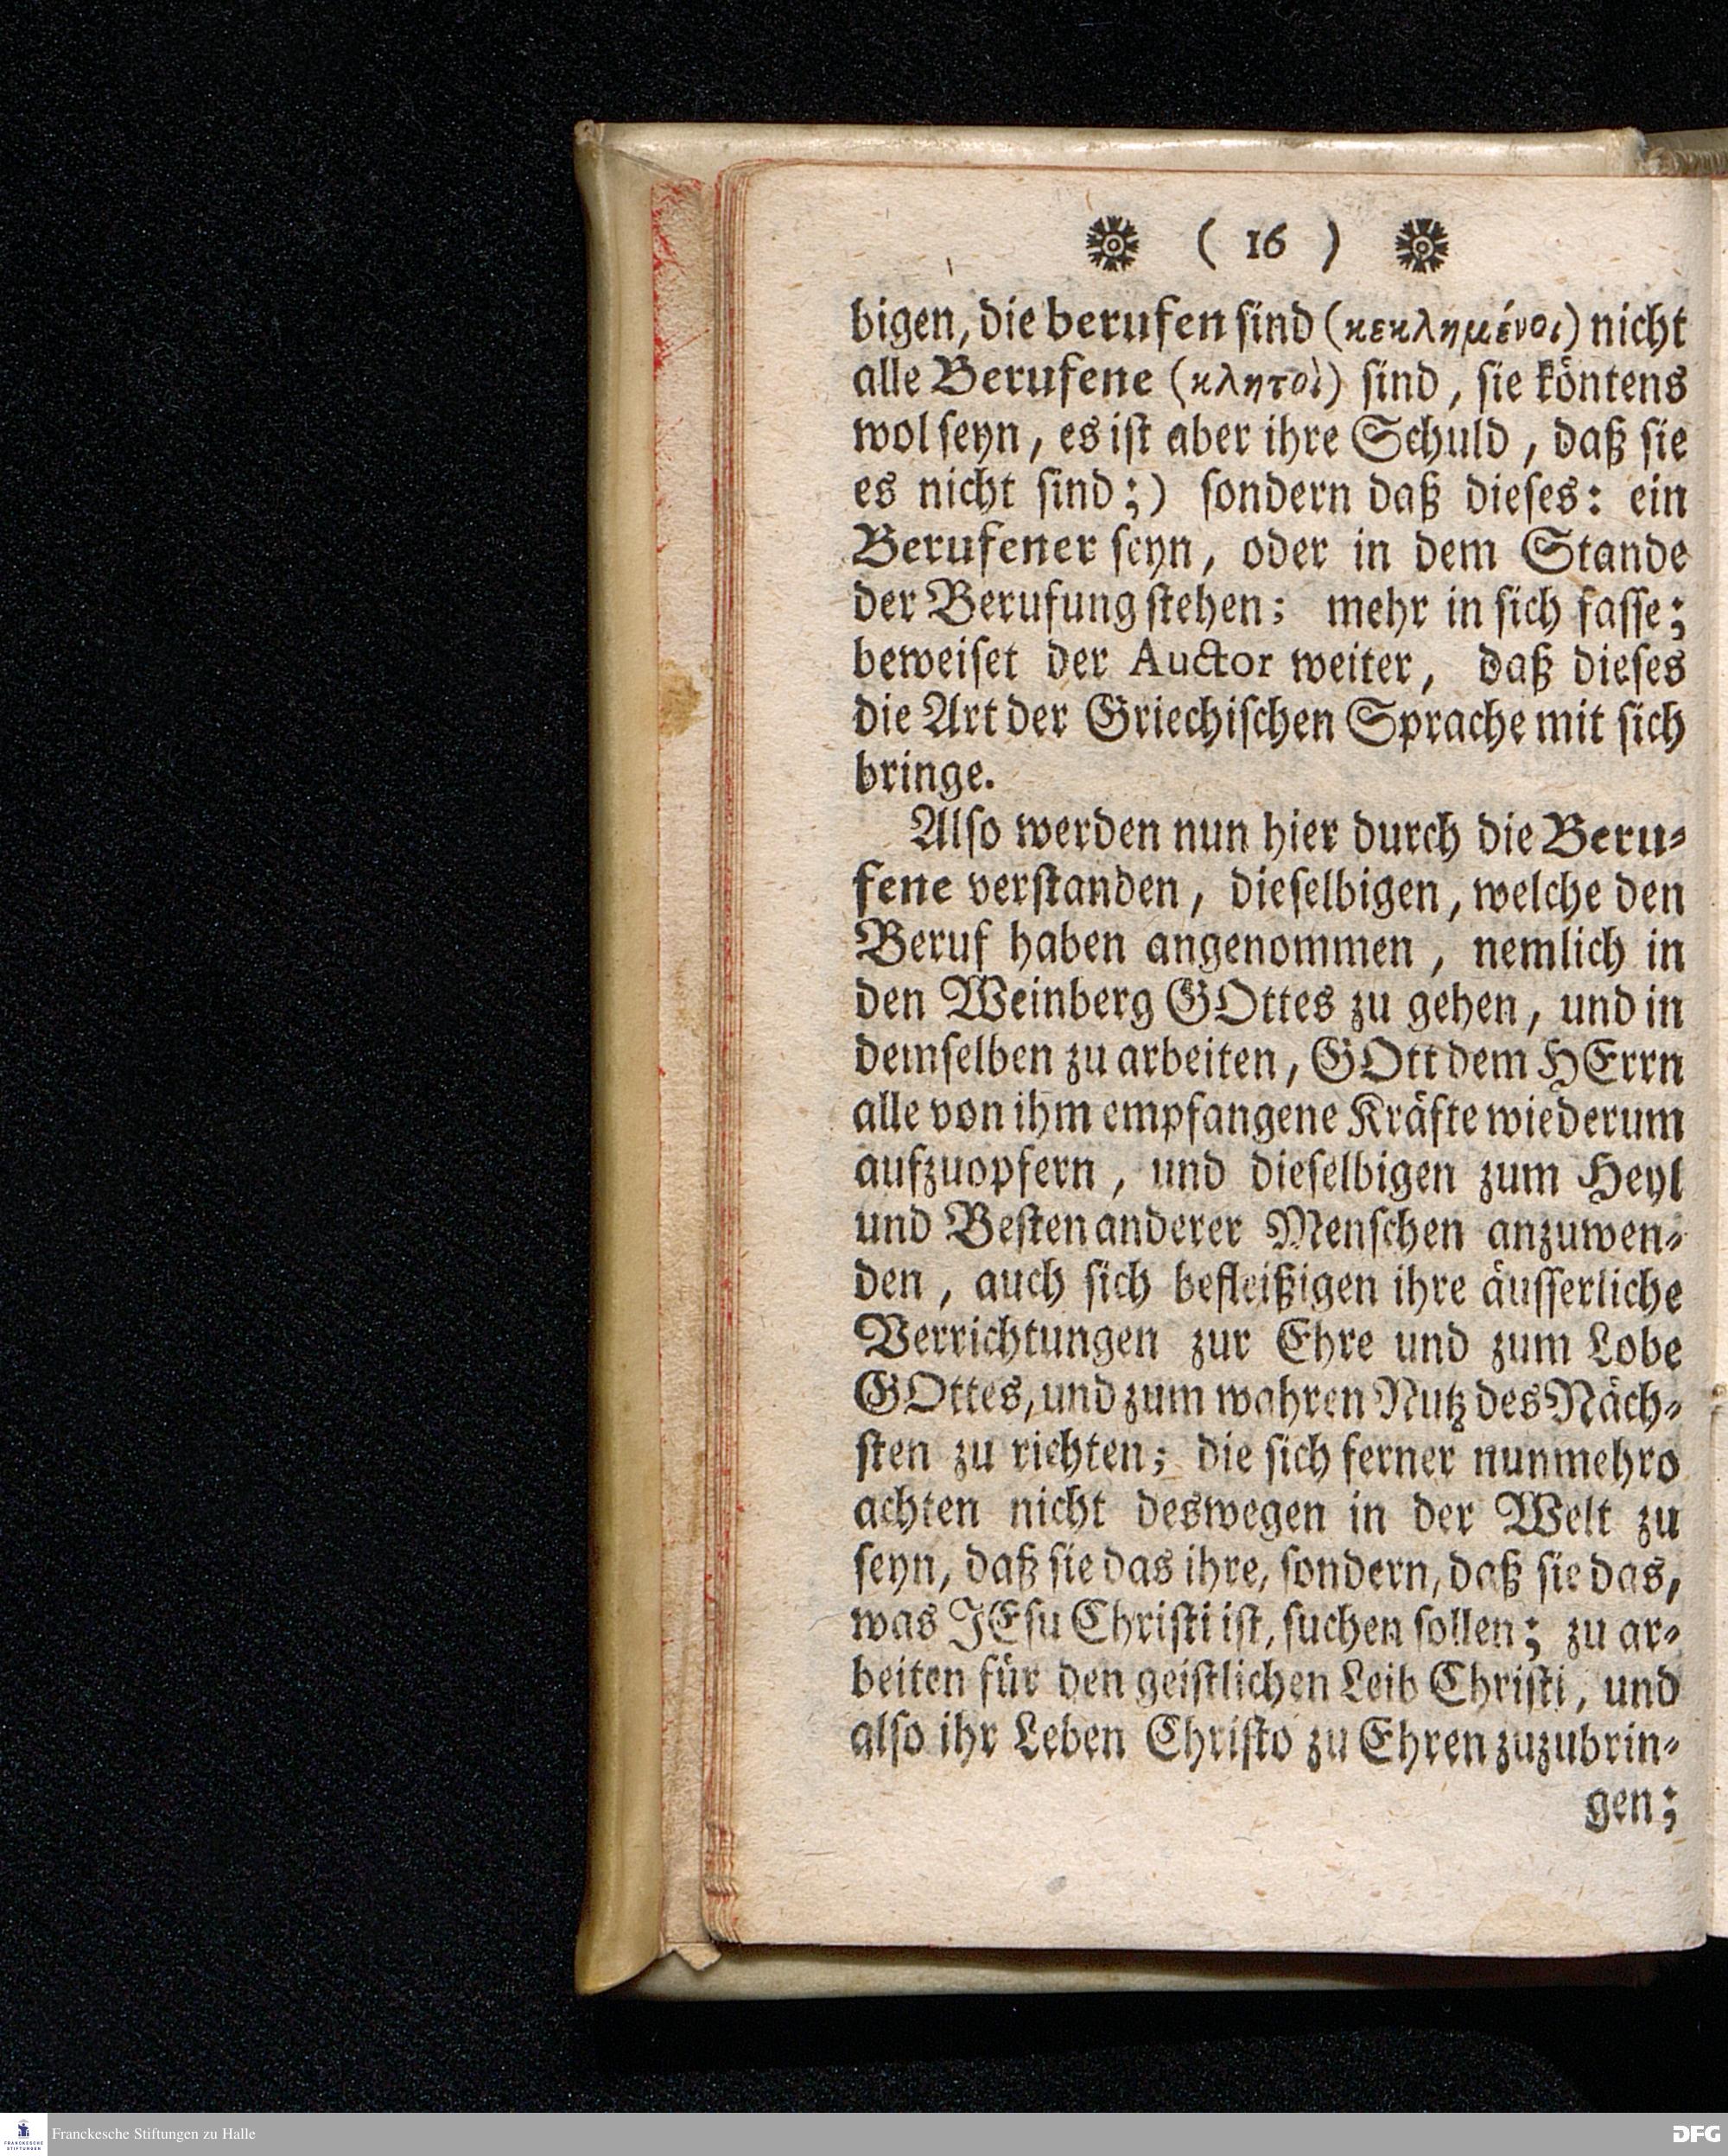 ( 16 )
bigen, die berufen ſind (κεκλημένοι) nicht
alle Berufene (κλητοὶ) ſind, ſie köntens
wol ſeyn, es iſt aber ihre Schuld, daß ſie
es nicht ſind;) ſondern daß dieſes: ein
Berufener ſeyn, oder in dem Stande
der Berufung ſtehen; mehr in ſich faſſe;
beweiſet der Auctor weiter, daß dieſes
die Art der Griechiſchen Sprache mit ſich
bringe.
Alſo werden nun hier durch die Beru-
fene verſtanden, dieſelbigen, welche den
Beruf haben angenommen, nemlich in
den Weinberg GOttes zu gehen, und in
demſelben zu arbeiten, GOtt dem HErrn
alle von ihm empfangene Kräfte wiederum
aufzuopfern, und dieſelbigen zum Heyl
und Beſten anderer Menſchen anzuwen-
den, auch ſich befleißigen ihre äuſſerliche
Verrichtungen zur Ehre und zum Lobe
GOttes, und zum wahren Nutz des Näch-
ſten zu richten; die ſich ferner nunmehro
achten nicht deswegen in der Welt zu
ſeyn, daß ſie das ihre, ſondern, daß ſie das,
was JEſu Chriſti iſt, ſuchen ſollen; zu ar-
beiten für den geiſtlichen Leib Chriſti, und
alſo ihr Leben Chriſto zu Ehren zuzubrin-
gen;
FRANCKESCHE STIFTUNGEN
Franckesche Stiftungen zu Halle
DFG